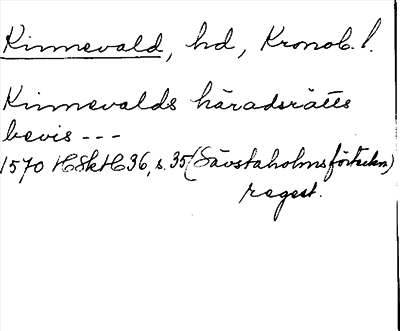 Kinnevald, hd, Kronob. l.
Kinnevalds häradsrätts
bevis ---
1570 HSkH 36, s. 35 (Sävstaholmsförteckn)
regest.